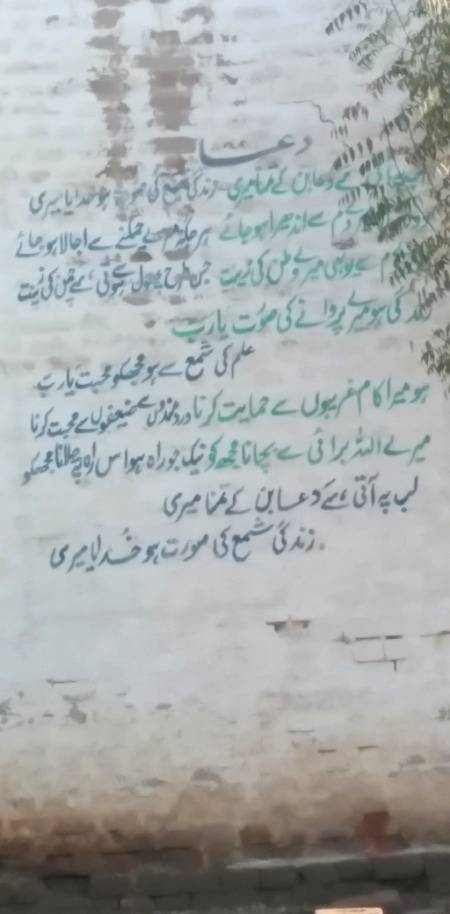 دعا
دعا بن کے تمنا میری زندگی شمع کی صورت ہو خدایا میری
دم سے اندھیرا ہو جائے ہر جگہ میرے چمکنے سے اجالا ہو جائے
سے یونہی میرے وطن کی زینت جس طرح پھول سے ہوتی ہے چمن کی زینت
کی ہو میرے پروانے کی صورت یارب
علم کی شمع سے ہو مجھکو محبت یارب
ہو میرا کام غریبوں سے حمایت کرنا دردمندوں سے ضعیفوں سے محبت کرنا
میرے اللہ برائی سے بچانا مجھ کو نیک جو راہ ہو اس راہ پے چلانا مجھکو
لب پہ آتی ہے دعا بن کے تمنا میری
زندگی شمع کی صورت ہو خدایا میری